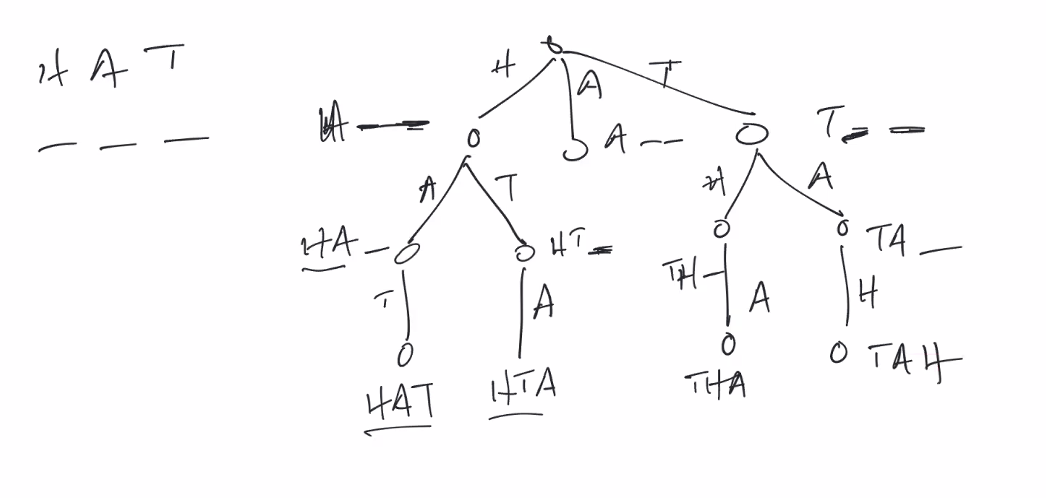 H A T
H A T
H _ _ A _ _ T _ _
A T H A
HA _ HT _ TH _ TA _
T A A H
HAT HTA THA TAH